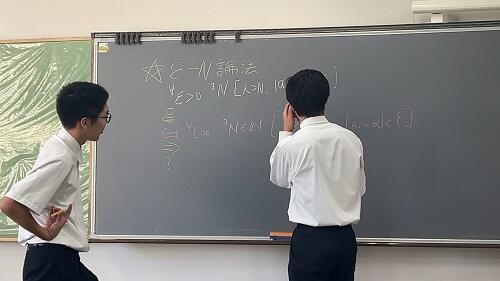 ☆ ε-N論法
∀ε>0 ∃N [ n>N, |a ]
⇐
⇔ ∀ε>0 ∃N∈ℕ [ |aᵢ-α|<ε]
⇒
?